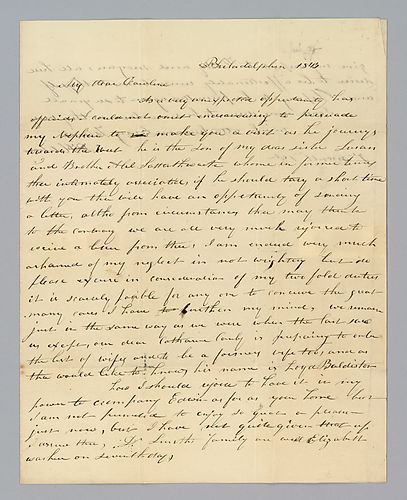 Philadelphia 184
My dear Caroline
As a very unexpected oppertunity has
offerd I could not omit endeavouring to persuade
my Nephew to make you a visit as he journeys
towards the West he is the Son of my dear sister Susan
and Brother Abil Satterthwaite whome in former times
thee intimately associated if he should tary a short time
with you thee will have an oppertunity of sending
a letter, altho from circumstances thee may think
to the contrary we are all very much rejoiced to
receive a letter from thee, I am indeed very much
ashamed of my neglect in not wrighting but do
please excuse in consideration of my two fold duties
it is scarcely posible for any one to conceive the great
many cares I have to burthen my mind, we remain
just in the same way as we were when thee last saw
us except our dear Catharine Canby is prepairing to enter
the list of wifes and to be a farmers wife too, and as
thee would like to know his name is Loyd Balderston
how I should rejoice to have it in my
power to accompany Edwin as far as your home but
I am not permited to enjoy so great a pleasure
just now, but I have not quite given that up
I assure thee, Dr Smiths family are well Elizabeth
was here on seventh day